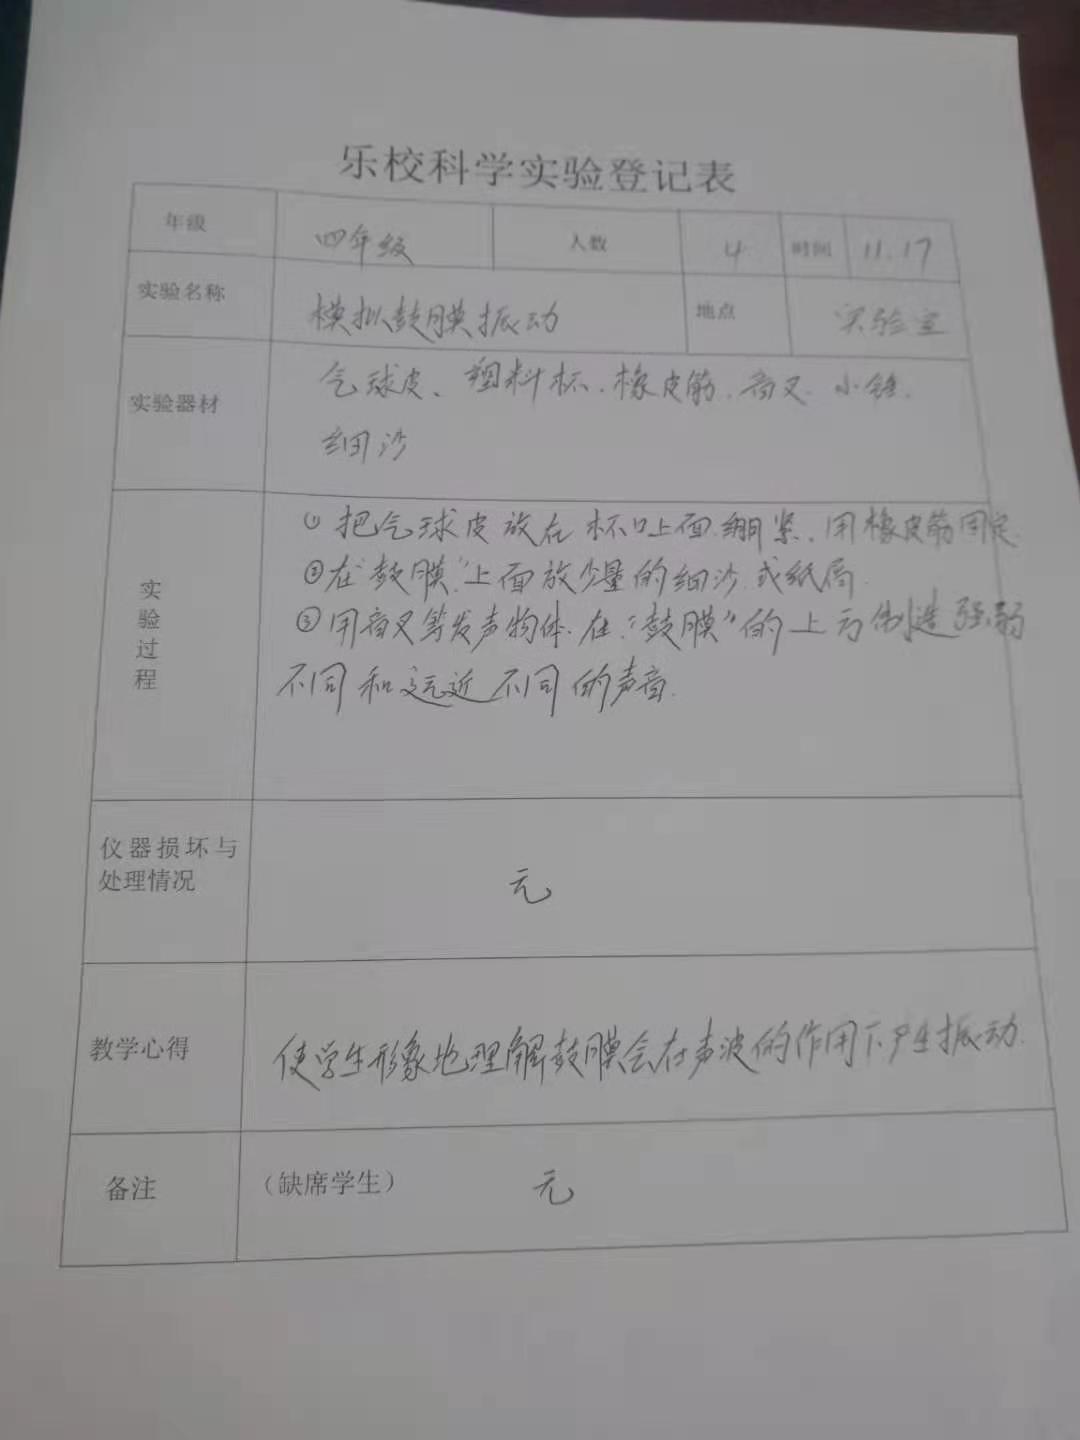 乐校科学实验登记表
年级 四年级 人数 4 时间 11.17
实验名称 模拟鼓膜振动 地点 实验室
实验器材 气球皮、塑料杯、橡皮筋、音叉、小锤、
细沙
实验过程
①把气球皮放在杯口上面绷紧、用橡皮筋固定
②在“鼓膜”上面放少量的细沙或纸屑
③用音叉等发声物体、在“鼓膜”的上方制造强弱
不同和远近不同的声音.
仪器损坏与
处理情况 无
教学心得 使学生形象地理解鼓膜会在声波的作用下产生振动.
备注 （缺席学生） 无